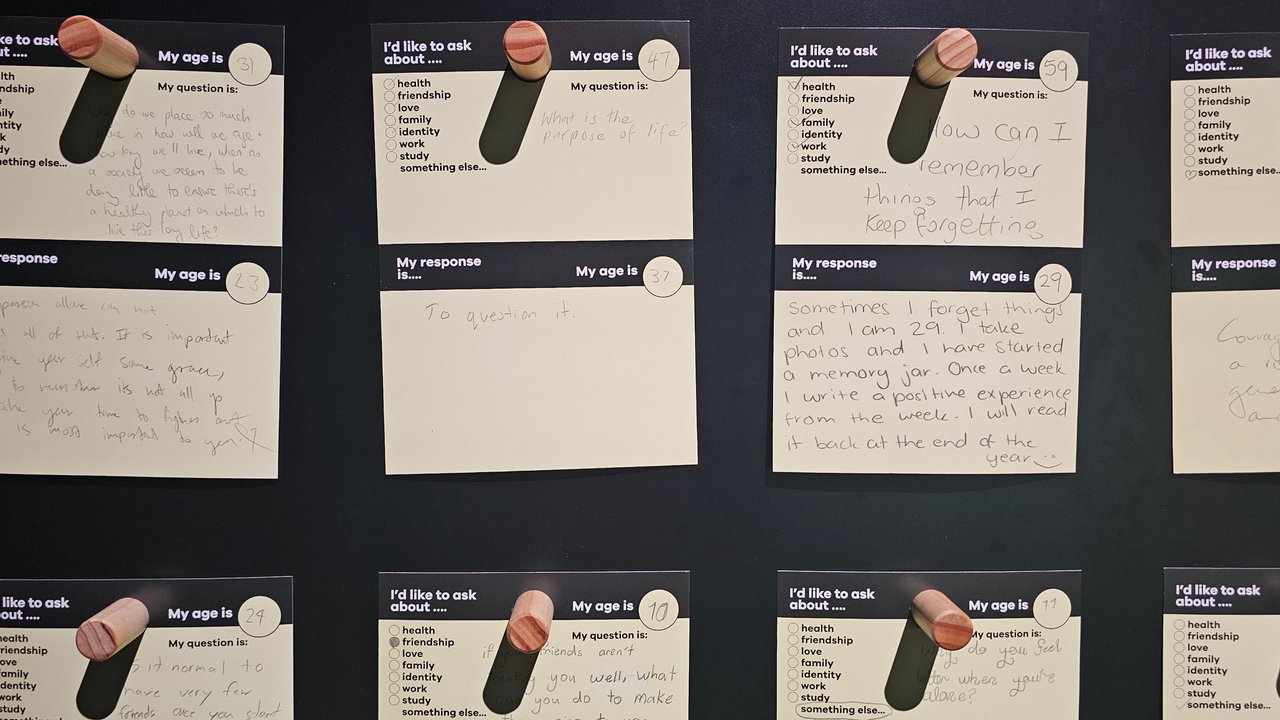 like to ask
ut ....
My age is 31
lth
ndship
e
mily
ntity
rk
dy
mething else...
do we place so much
in how well we age +
how long we'll live, when as
a society we seem to be
doing little to ensure there's
a healthy planet on which to
live this long life?
response
My age is 23
person alone can not
all of that. It is important
give your self some grace,
to remember its not all
take your time to figure out
is most important to you.
I'd like to ask
about ....
My age is 47
health
friendship
love
family
identity
work
study
something else...
My question is:
What is the
purpose of life?
My response
is....
My age is 37
To question it.
I'd like to ask
about ....
My age is 59
health
friendship
love
family
identity
work
study
something else...
My question is:
How can I
remember
things that I
keep forgetting
My response
is....
My age is 29
Sometimes I forget things
and I am 29. I take
photos and I have started
a memory jar. Once a week
I write a positive experience
from the week. I will read
it back at the end of the
year
I'd like to ask
about ....
health
friendship
love
family
identity
work
study
something else...
My response
is....
Courag
a
gen
an
like to ask
ut ....
My age is 24
health
riendship
ove
amily
dentity
work
study
something else...
My question is:
Is it normal to
have very few
friends once you start
I'd like to ask
about ....
My age is 10
health
friendship
love
family
identity
work
study
something else...
My question is:
if your friends aren't
treating you well, what
can you do to make
I'd like to ask
about ....
My age is 11
health
friendship
love
family
identity
work
study
something else...
My question is:
Why do you feel
better when you're
alone?
I'd like to ask
about ....
health
friendship
love
family
identity
work
study
something else...